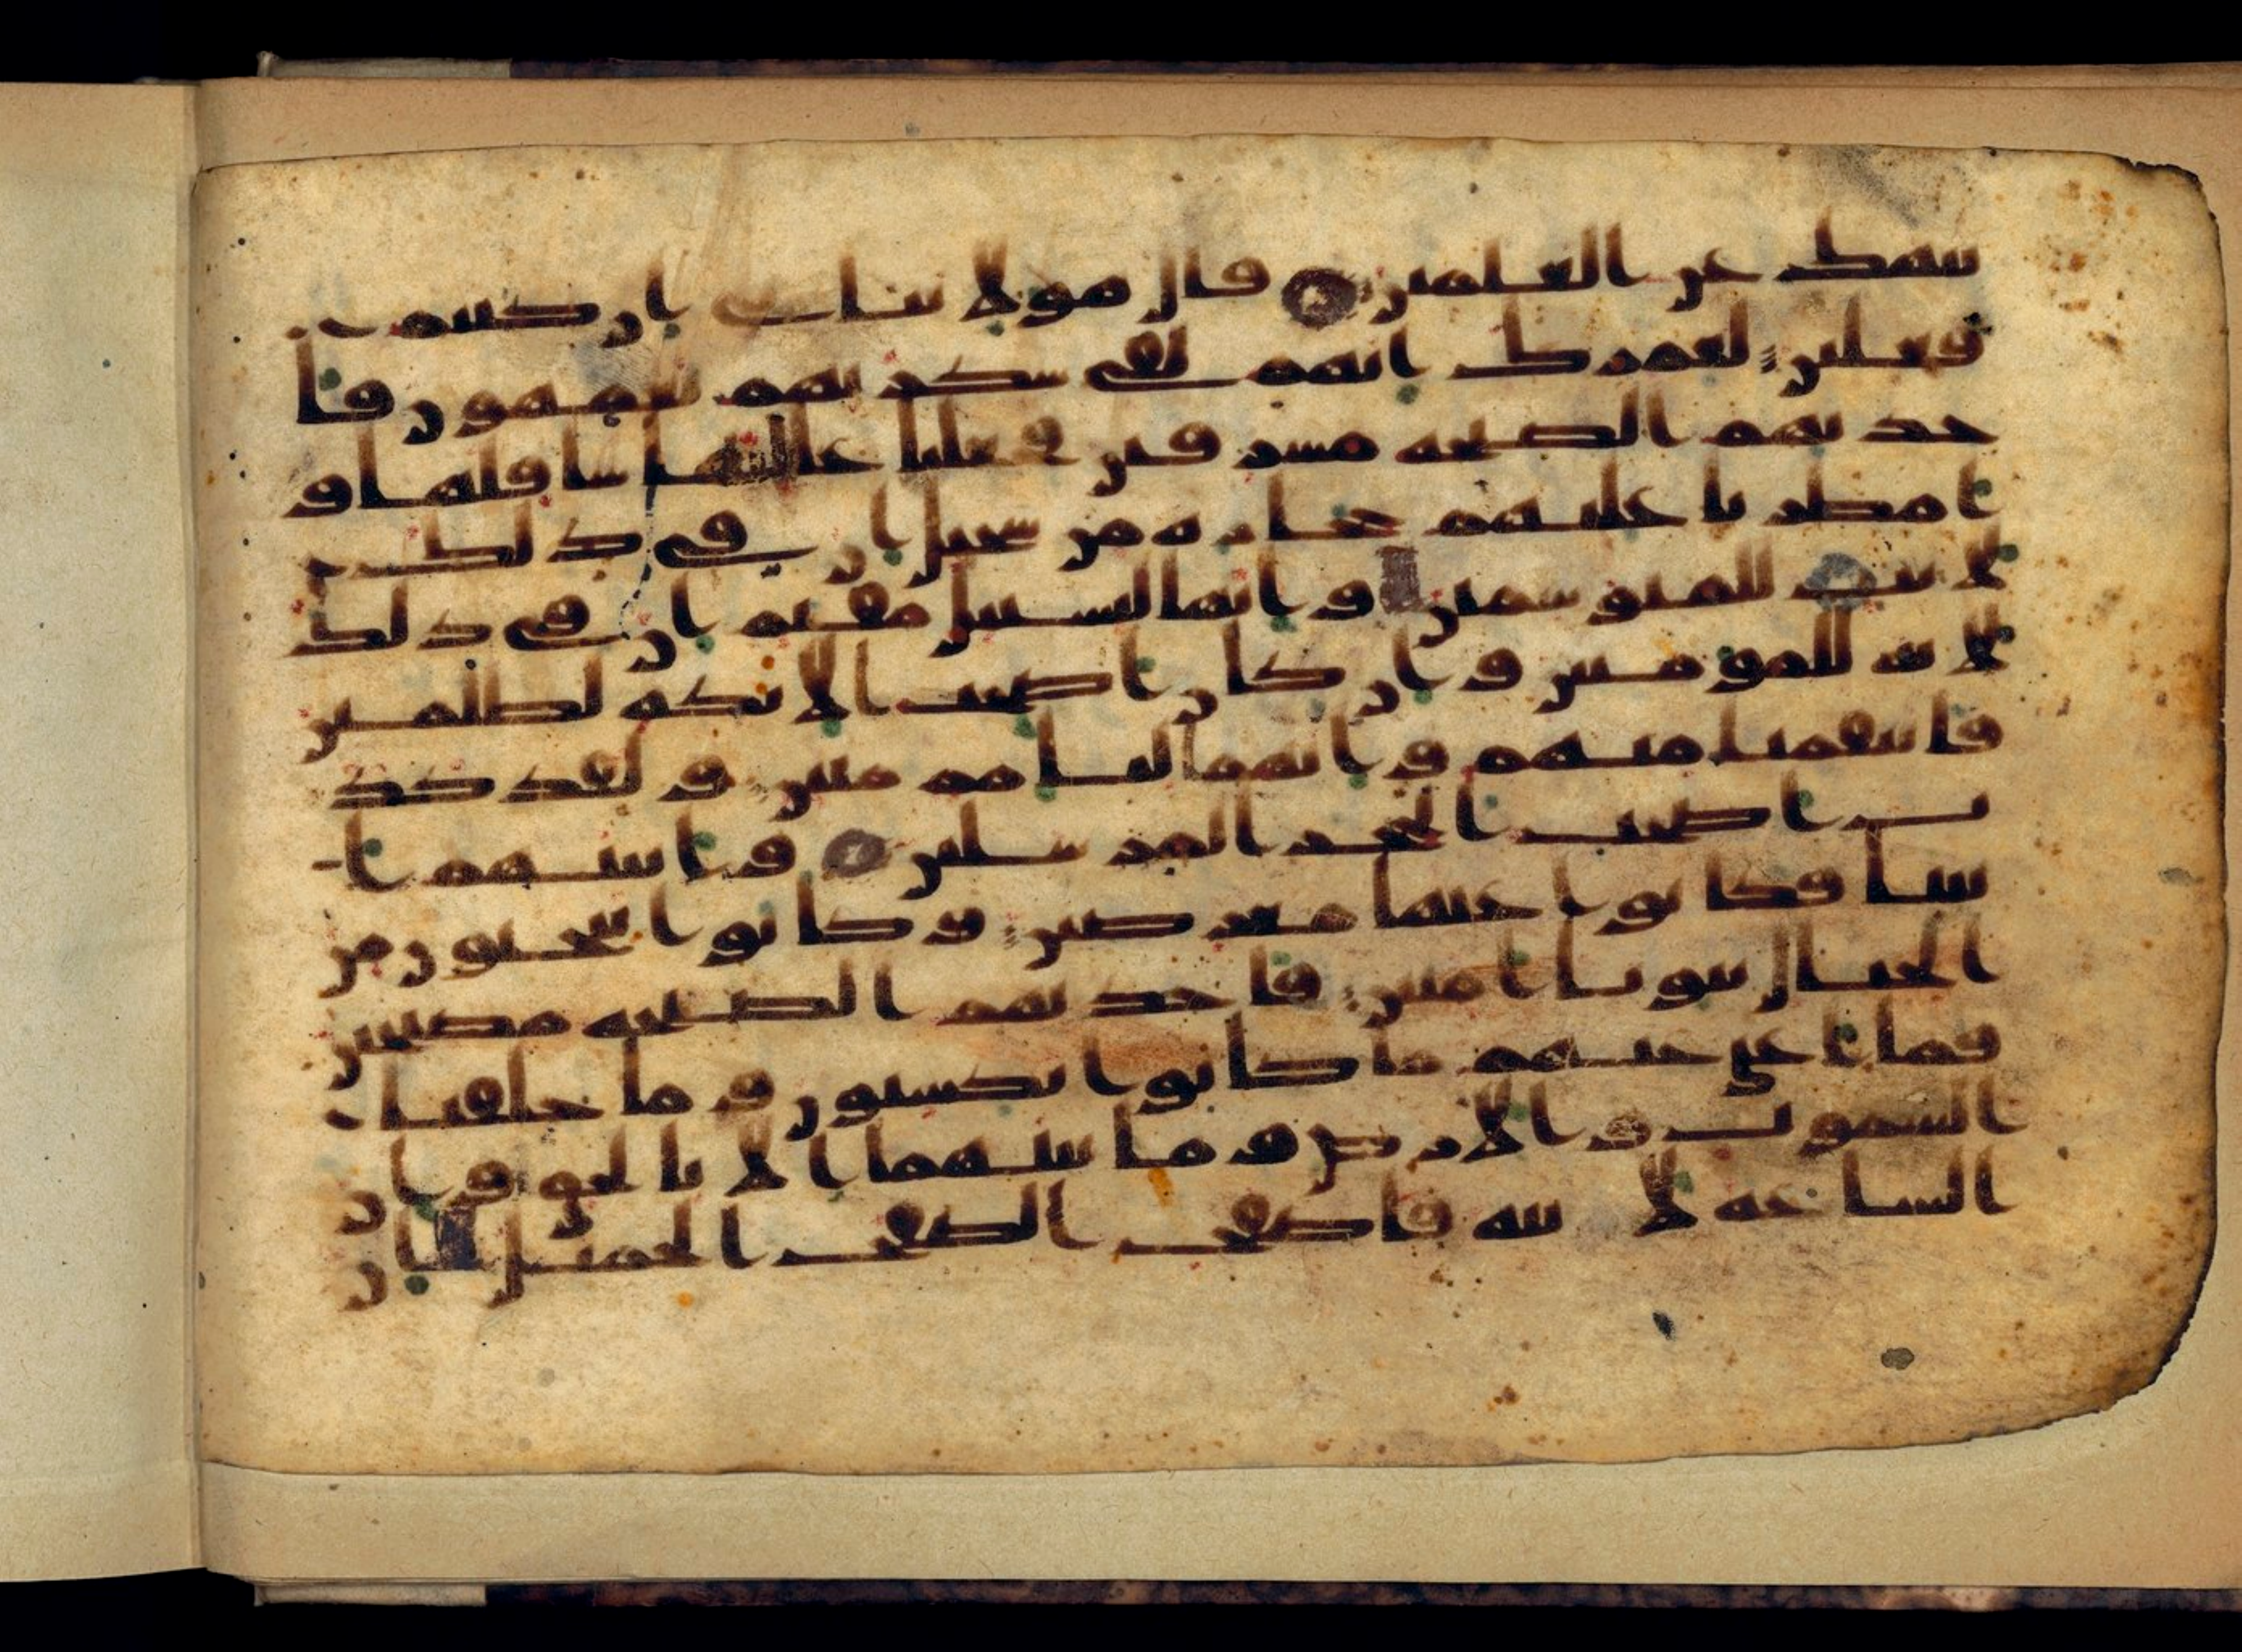 ننهك عن العلمين قال هولا بناتى ان كنتم
فعلين لعمرك انهم لفى سكرتهم يعمهون فا
خذتهم الصيحه مشرقين فجعلنا عليها سافلها و
امطرنا عليهم حجاره من سجيل ان فى ذلك
لايت للمتوسمين وانها لبسبيل مقيم ان فى ذلك
لايه للمومنين وان كان اصحب الايكه لظلمين
فانتقمنا منهم وانهما لبامم مبين ولقد كذ
ب اصحب الحجر المرسلين واتينهم ا
يتنا فكانوا عنها معرضين وكانوا ينحتون من
الجبال بيوتا امنين فاخذتهم الصيحه مصبحين
فما اغنى عنهم ما كانوا يكسبون وما خلقنا
السموت والارض وما بينهما الا بالحق وان
الساعه لاتيه فاصفح الصفح الجميل ان